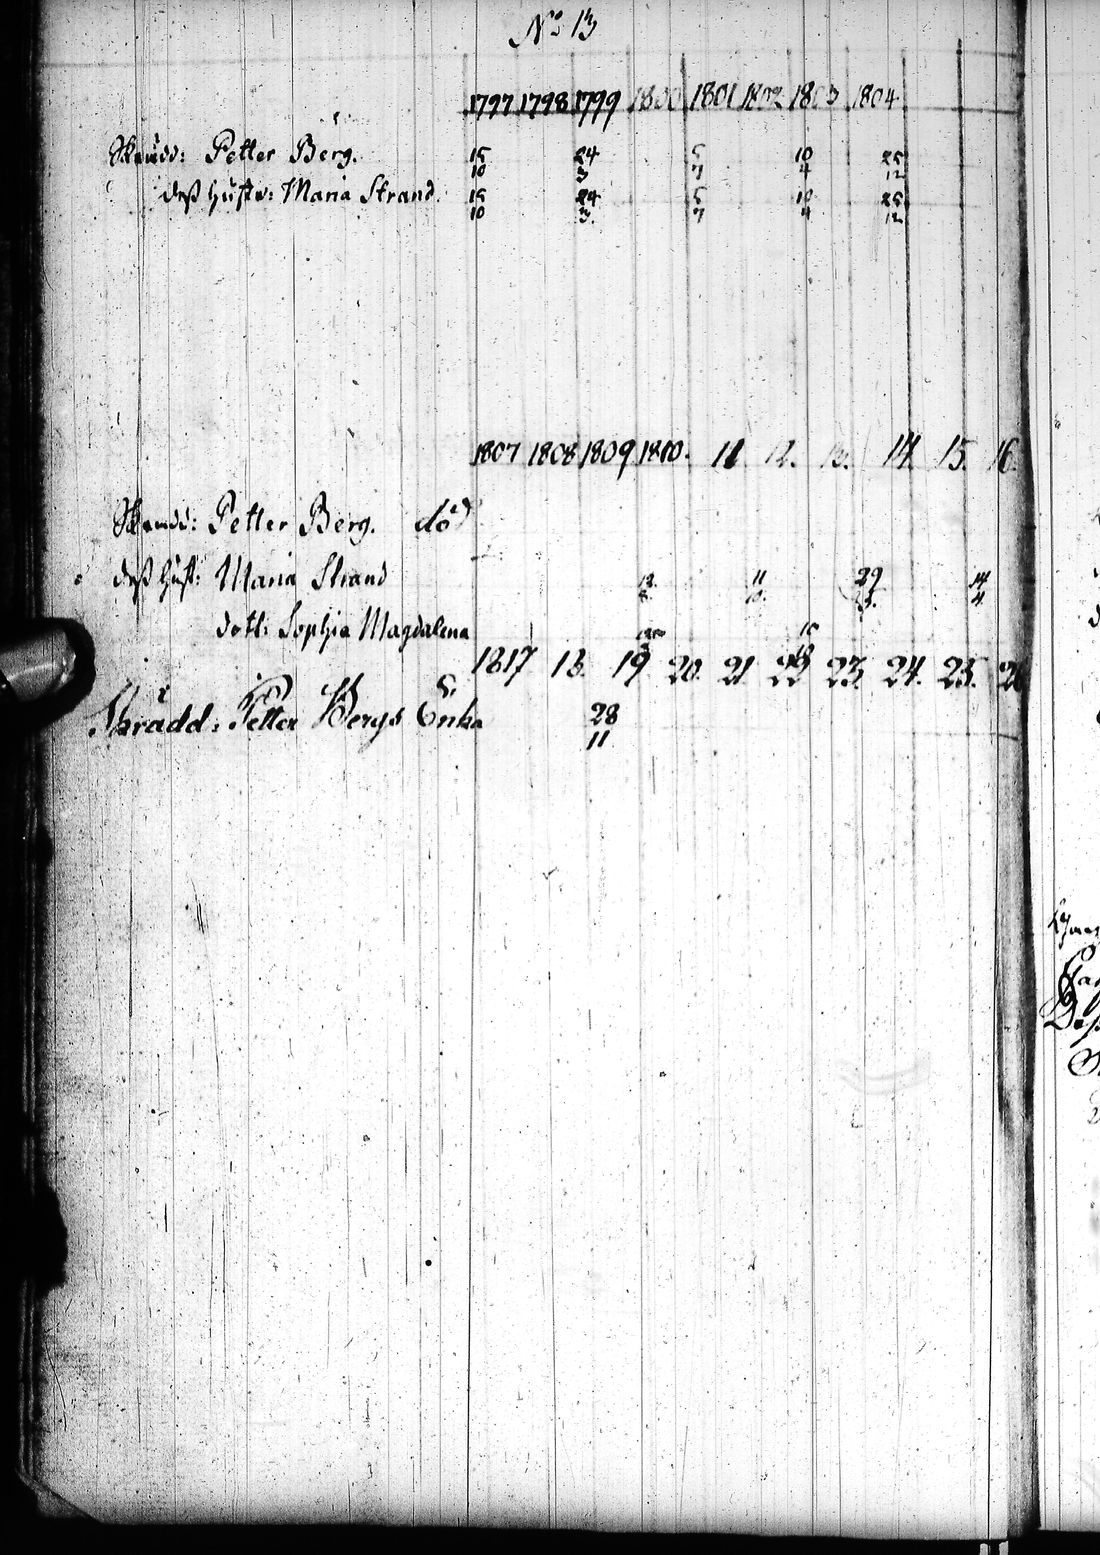 No 13
1797 1798 1799 1800 1801 1802 1803 1804
Skrädd: Petter Berg. 15 24 5 10 25
10 3 7 4 12
deß Hustr: Maria Strand. 15 24 5 10 25
10 3. 7 4 12
1807 1808 1809 1810. 11 12. 13. 14 15. 16.
Skrädd: Petter Berg. död
deß Hust: Maria Strand 12. 11 29 14
4.
dott: Sophia Magdalena
1817 18. 19 20. 21 22 23. 24. 25.
Skrädd: Petter Bergs Enka 28
11